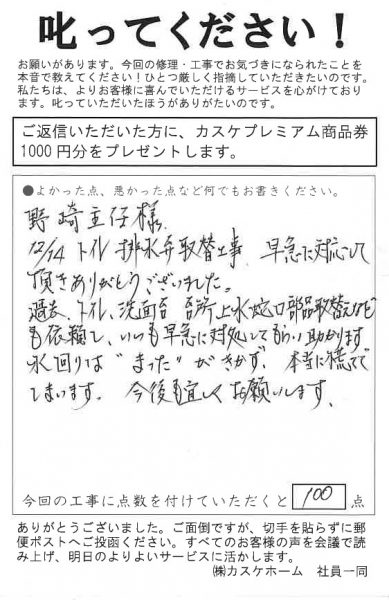 叱ってください！
お願いがあります。今回の修理・工事でお気づきになられたことを
本音で教えてください！ひとつ厳しく指摘していただきたいのです。
私たちは、よりお客様に喜んでいただけるサービスを心がけておりま
す。叱っていただいたほうがありがたいのです。
ご返信いただいた方に、カスケプレミアム商品券
1000円分をプレゼントします。
●よかった点、悪かった点など何でもお書きください。
野崎主任様
12/14 トイレ排水弁取替工事、早急に対応して
頂きありがとうございました。
過去、トイレ、洗面台 台所上水蛇口部品取替えなど
も依頼し、いつも早急に対処してもらい助かります
水回りは"まった"がきかず、本当に慌てて
しまいます。今後も宜しくお願いします。
今回の工事に点数を付けていただくと 100 点
ありがとうございました。ご面倒ですが、切手を貼らずに郵
便ポストへご投函ください。すべてのお客様の声を会議で読
み上げ、明日のよりよいサービスに活かします。
㈱カスケホーム 社員一同